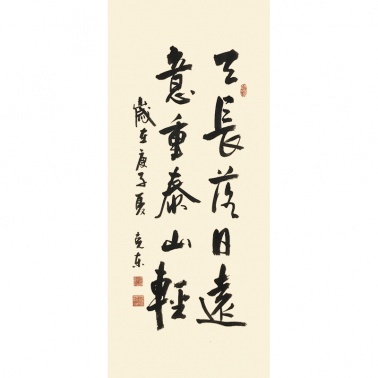 天長落日遠
意重泰山輕
歲在庚子夏 克東